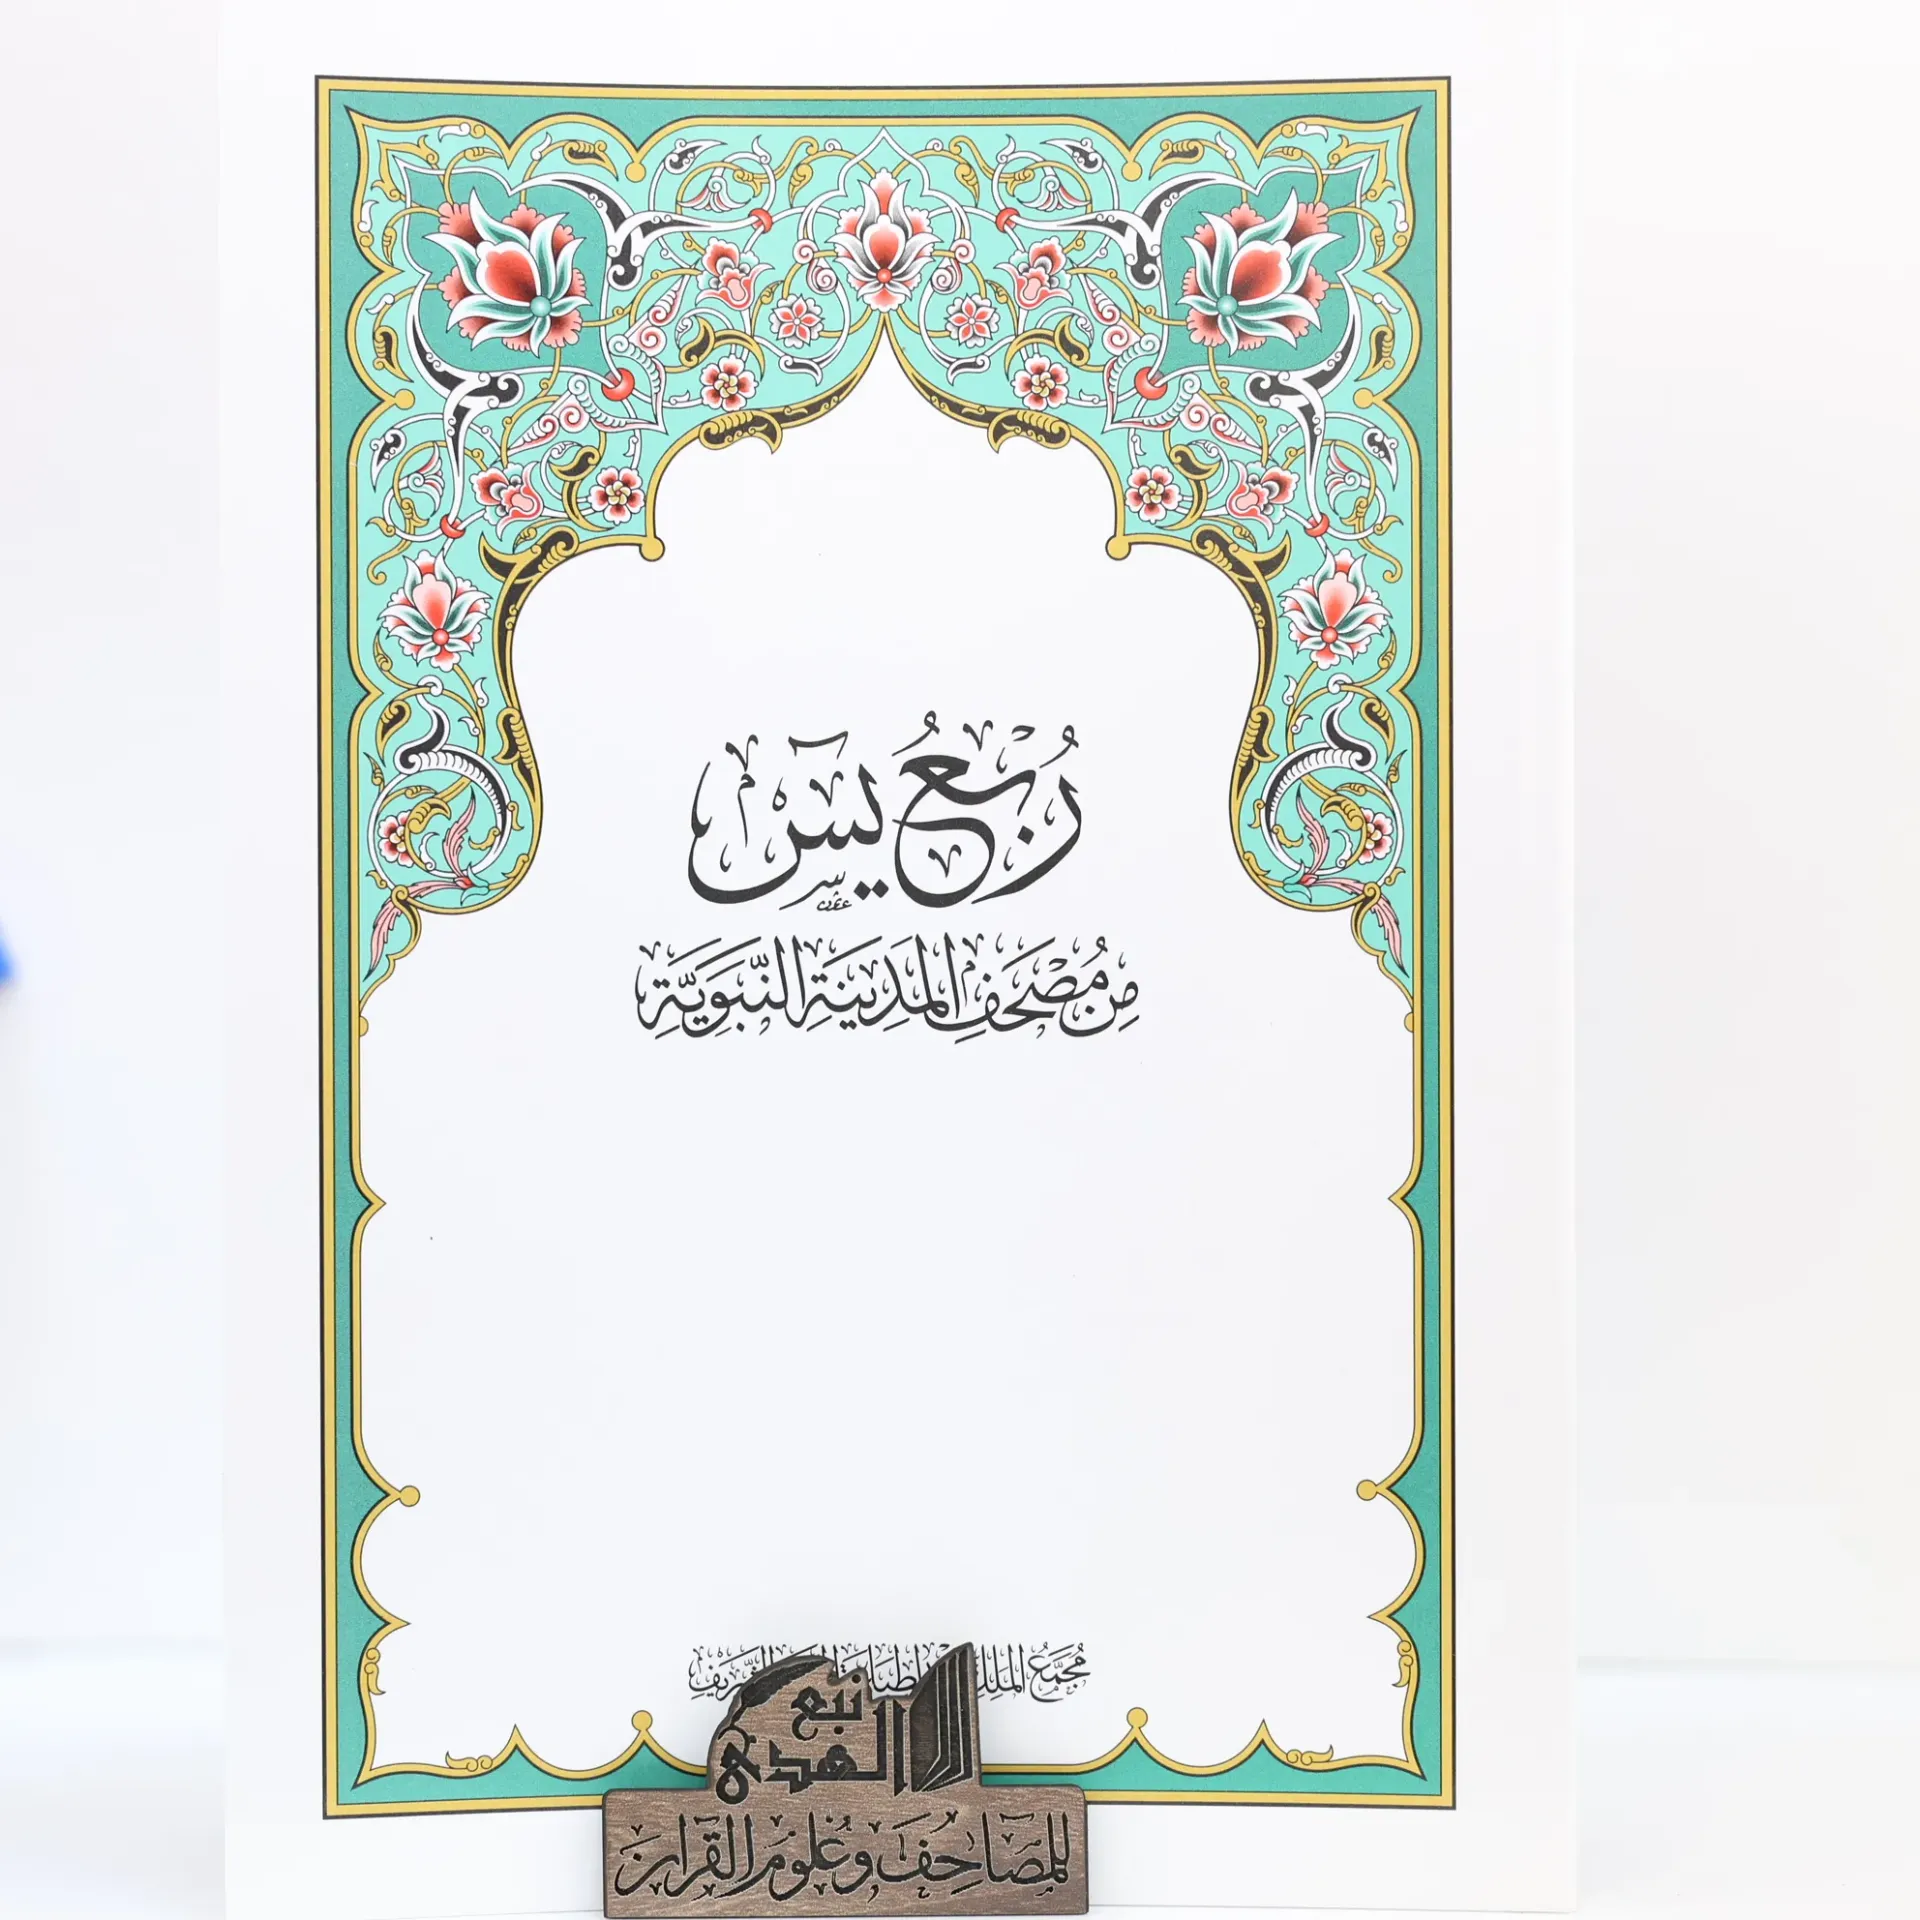 رُبْعُ يسٓ
مِنْ مُصْحَفِ الْمَدِينَةِ النَّبَوِيَّةِ
مُجَمَّعُ الْمَلِكِ
نبع
الهدى
للمصَاحِف وعُلوم القرآن